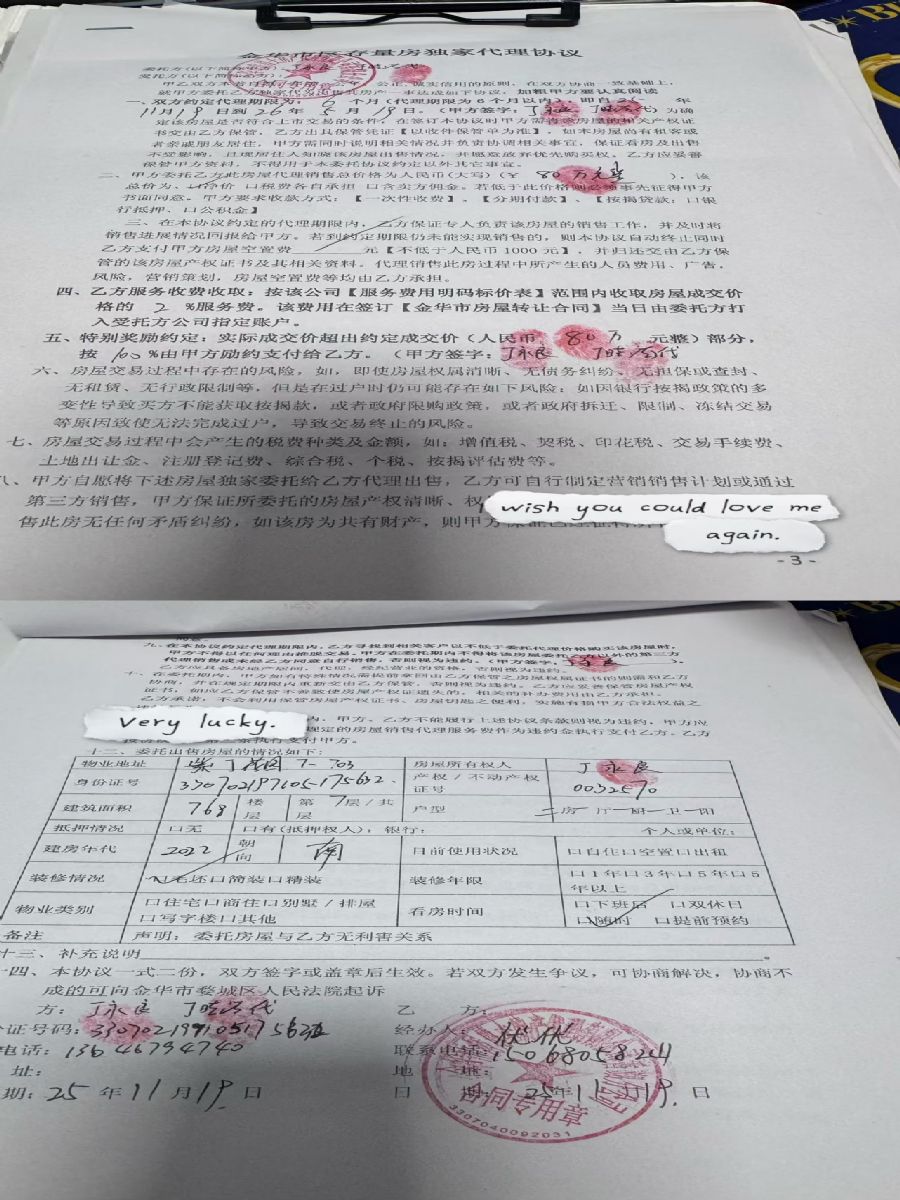 金华市区存量房独家代理协议
委托方(以下简称甲方):丁永良
受托方(以下简称乙方):
就甲方委托乙方独家代为出售房产一事达成如下协议,如粗甲方要认真阅读
一、双方约定代理期限为:6个月(代理期限为6个月以内),即自25年
11月19日到26年5月19日。(甲方签字:丁永良 代)为确
定该房屋是否符合上市交易的条件,在签订本协议时甲方需将该房屋的相关产权证
书交由乙方保管,乙方出具保管凭证【以收件保管单为准】,如本房屋尚有租客或
者亲戚朋友居住,甲方需同时说明相关情况并负责协调相关事宜,保证看房及出售
不受影响,且现居住人知晓该房屋出售情况,并愿意放弃优先购买权。乙方应妥善
接管甲方资料,不得用于本委托协议约定以外其它事宜。
二、甲方委托乙方此房屋代理销售总价格为人民币(大写)(¥ 80万元整),该
总价为、口净价 口税费各自承担 口含卖方佣金。若低于此价格则必须事先征得甲方
书面同意。甲方要求收款方式:【一次性收费】、【分期付款】、【按揭贷款:口银
行抵押、口公积金】
三、在本协议约定的代理期限内,乙方保证专人负责该房屋的销售工作,并及时将
销售进展情况回报给甲方。若到约定期限仍未能实现销售的,则本协议自动终止同时
乙方支付甲方房屋空置费 元【不低于人民币1000元】,并归还交由乙方保
管的该房屋产权证书及其相关资料。代理销售此房过程中所产生的人员费用、广告,
风险,营销策划,房屋空置费等均由乙方承担。
四、乙方服务收费收取:按该公司【服务费用明码标价表】范围内收取房屋成交价
格的 2 %服务费。该费用在签订【金华市房屋转让合同】当日由委托方打
入受托方公司指定账户。
五、特别奖励约定:实际成交价超出约定成交价(人民币 80万 元整)部分,
按 100%由甲方励约支付给乙方。(甲方签字:丁永良 代
六、房屋交易过程中存在的风险,如,即使房屋权属清晰、无债务纠纷、无担保或查封、
无租赁、无行政限制等,但是在过户时仍可能存在如下风险:如因银行按揭政策的多
变性导致买方不能获取按揭款,或者政府限购政策,或者政府拆迁、限制、冻结交易
等原因致使无法完成过户,导致交易终止的风险。
七、房屋交易过程中会产生的税费种类及金额,如:增值税、契税、印花税、交易手续费、
土地出让金、注册登记费、综合税、个税、按揭评估费等。
八、甲方自愿将下述房屋独家委托给乙方代理出售,乙方可自行制定营销销售计划或通过
第三方销售,甲方保证所委托的房屋产权清晰、权
售此房无任何矛盾纠纷,如该房为共有财产,则甲方
wish you could love me
again.
- 3 -
九、在本协议约定代理期限内,乙方寻找到相关客户以不低于委托代理价格购买该房屋时,
甲方不得以任何理由推脱交易,甲方在委托期内不得将该房屋委托乙方以外的第三方
代理销售或未经乙方同意自行销售,否则视为违约。(甲方签字:丁永良 )。
十、在委托期内,甲方如有特殊情况需提前拿回由乙方保管之房屋权属证书的则需和乙方
协商,并在规定期限内重新交由乙方保管,否则视为违约。乙方应妥善保管房屋产权
证书,如应乙方保管不善致使房屋产权证遗失的,相关的补办费用由乙方承担。
乙方承诺,不会利用保管房屋产权证书、房屋钥匙之便利,实施有损甲方合法权益之
very lucky.
内,甲方、乙方不能履行上述协议条款则视为违约,甲方应
规定的房屋销售代理服务费作为违约金执行支付乙方。乙方
执行支付甲方。
十二、委托出售房屋的情况如下:
物业地址 7-703 房屋所有权人 丁永良
身份证号 330702197105175632 产权/不动产权证号 0032570
建筑面积 768 楼层 第7层/共层 户型 二房 厅 厨 卫 阳
抵押情况 口无 口有(抵押权人):银行: 个人或单位:
建房年代 2022 朝向 南 目前使用状况 口自住口空置口出租
装修情况 口毛坯口简装口精装 装修年限 口1年口3年口5年口5年以上
物业类别 口住宅口商住口别墅/排屋 口写字楼口其他 看房时间 口下班后 口双休日 口随时 口提前预约
备注 声明:委托房屋与乙方无利害关系
十三、补充说明
十四、本协议一式二份,双方签字或盖章后生效。若双方发生争议,可协商解决,协商不
成的可向金华市婺城区人民法院起诉
方:丁永良 代 乙 方:
证号码:330702197105175632 经办人:优优
电话:13646794740 联系电话:15068058241
址: 地 址:
期:25年11月19日 日 期:25年11月19日
合同专用章
3307040092031